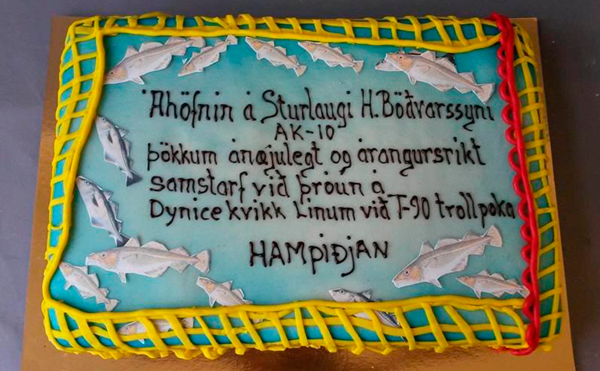 Áhöfnin á Sturlaugi H. Böðvarssyni
AK-10
þökkum ánæjulegt og árangursríkt
samstarf við þróun á
Dynice kvikk Linum við T-90 trollpoka
HAMPIÐJAN